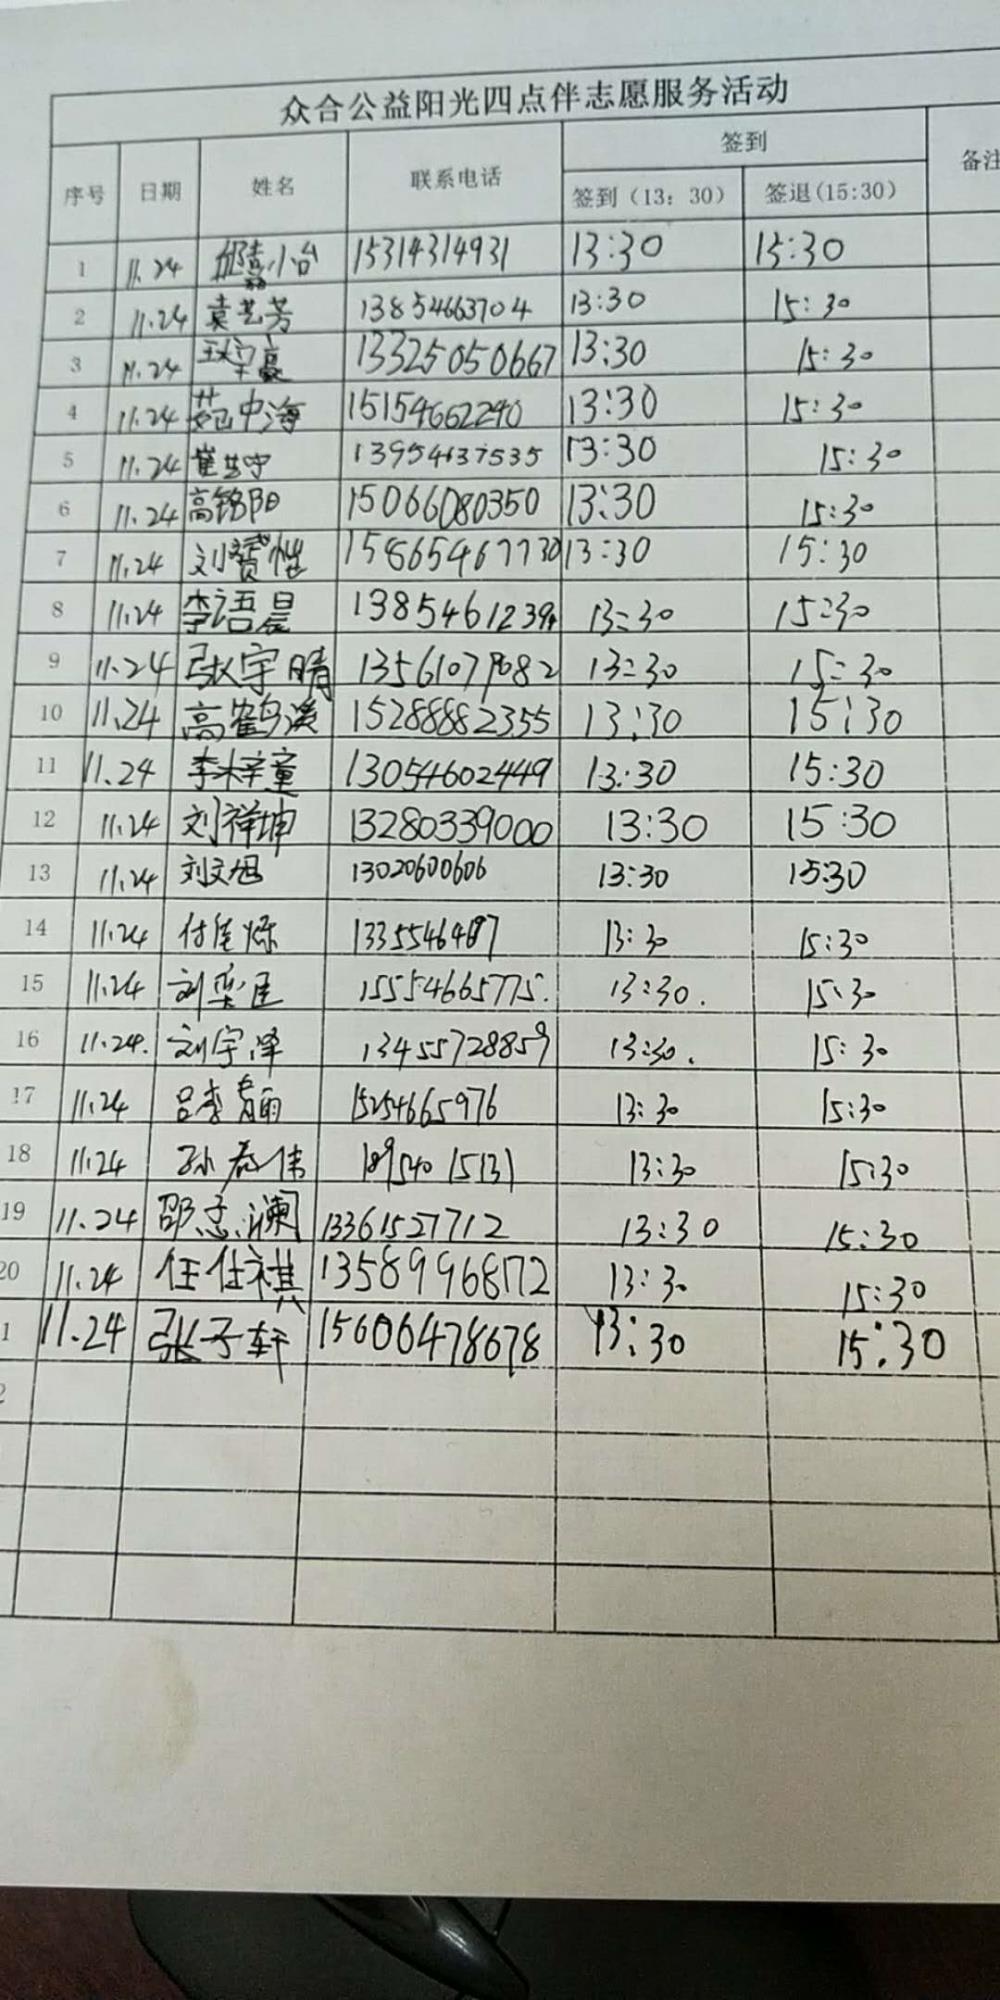 众合公益阳光四点伴志愿服务活动
序号 日期 姓名 联系电话 签到 备注
签到（13：30） 签退(15:30)
1 11.24 15314314931 13:30 15:30
2 11.24 袁艺芳 13854663704 13:30 15:30
3 11.24 13325050667 13:30 15:30
4 11.24 范中海 15154662240 13:30 15:30
5 11.24 13954637535 13:30 15:30
6 11.24 高铭阳 15066080350 13:30 15:30
7 11.24 15865467730 13:30 15:30
8 11.24 李语晨 13:30 15:30
9 11.24 张宇晴 13561079082 13:30 15:30
10 11.24 高鹤溪 15288882355 13:30 15:30
11 11.24 李梓童 13054602449 13:30 15:30
12 11.24 刘祥坤 13280339000 13:30 15:30
13 11.24 刘文旭 13020600606 13:30 15:30
14 11.24 13:30 15:30
15 11.24 15554665775. 13:30. 15:30
16 11.24. 刘宇泽 13455728859 13:30. 15:30
17 11.24 15254665976 13:30 15:30
18 11.24 18954015131 13:30 15:30
19 11.24 邵志澜 13361527712 13:30 15:30
20 11.24 任仕祺 13589968172 13:30 15:30
1 11.24 张子轩 15606478678 13:30 15:30
2